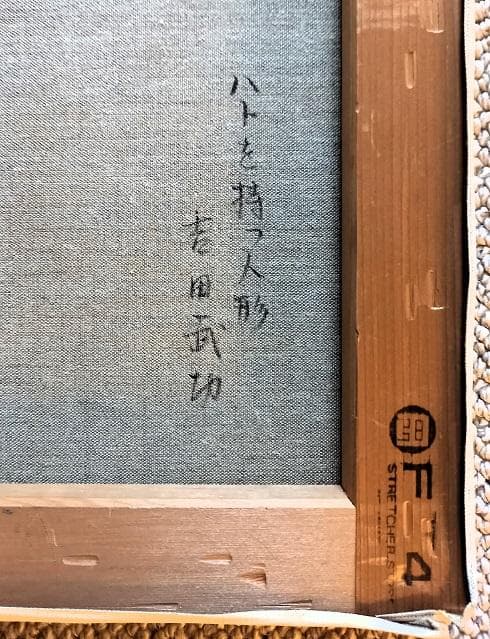 ハトを持つ人形
吉田武功
F 4
STRETCHER S